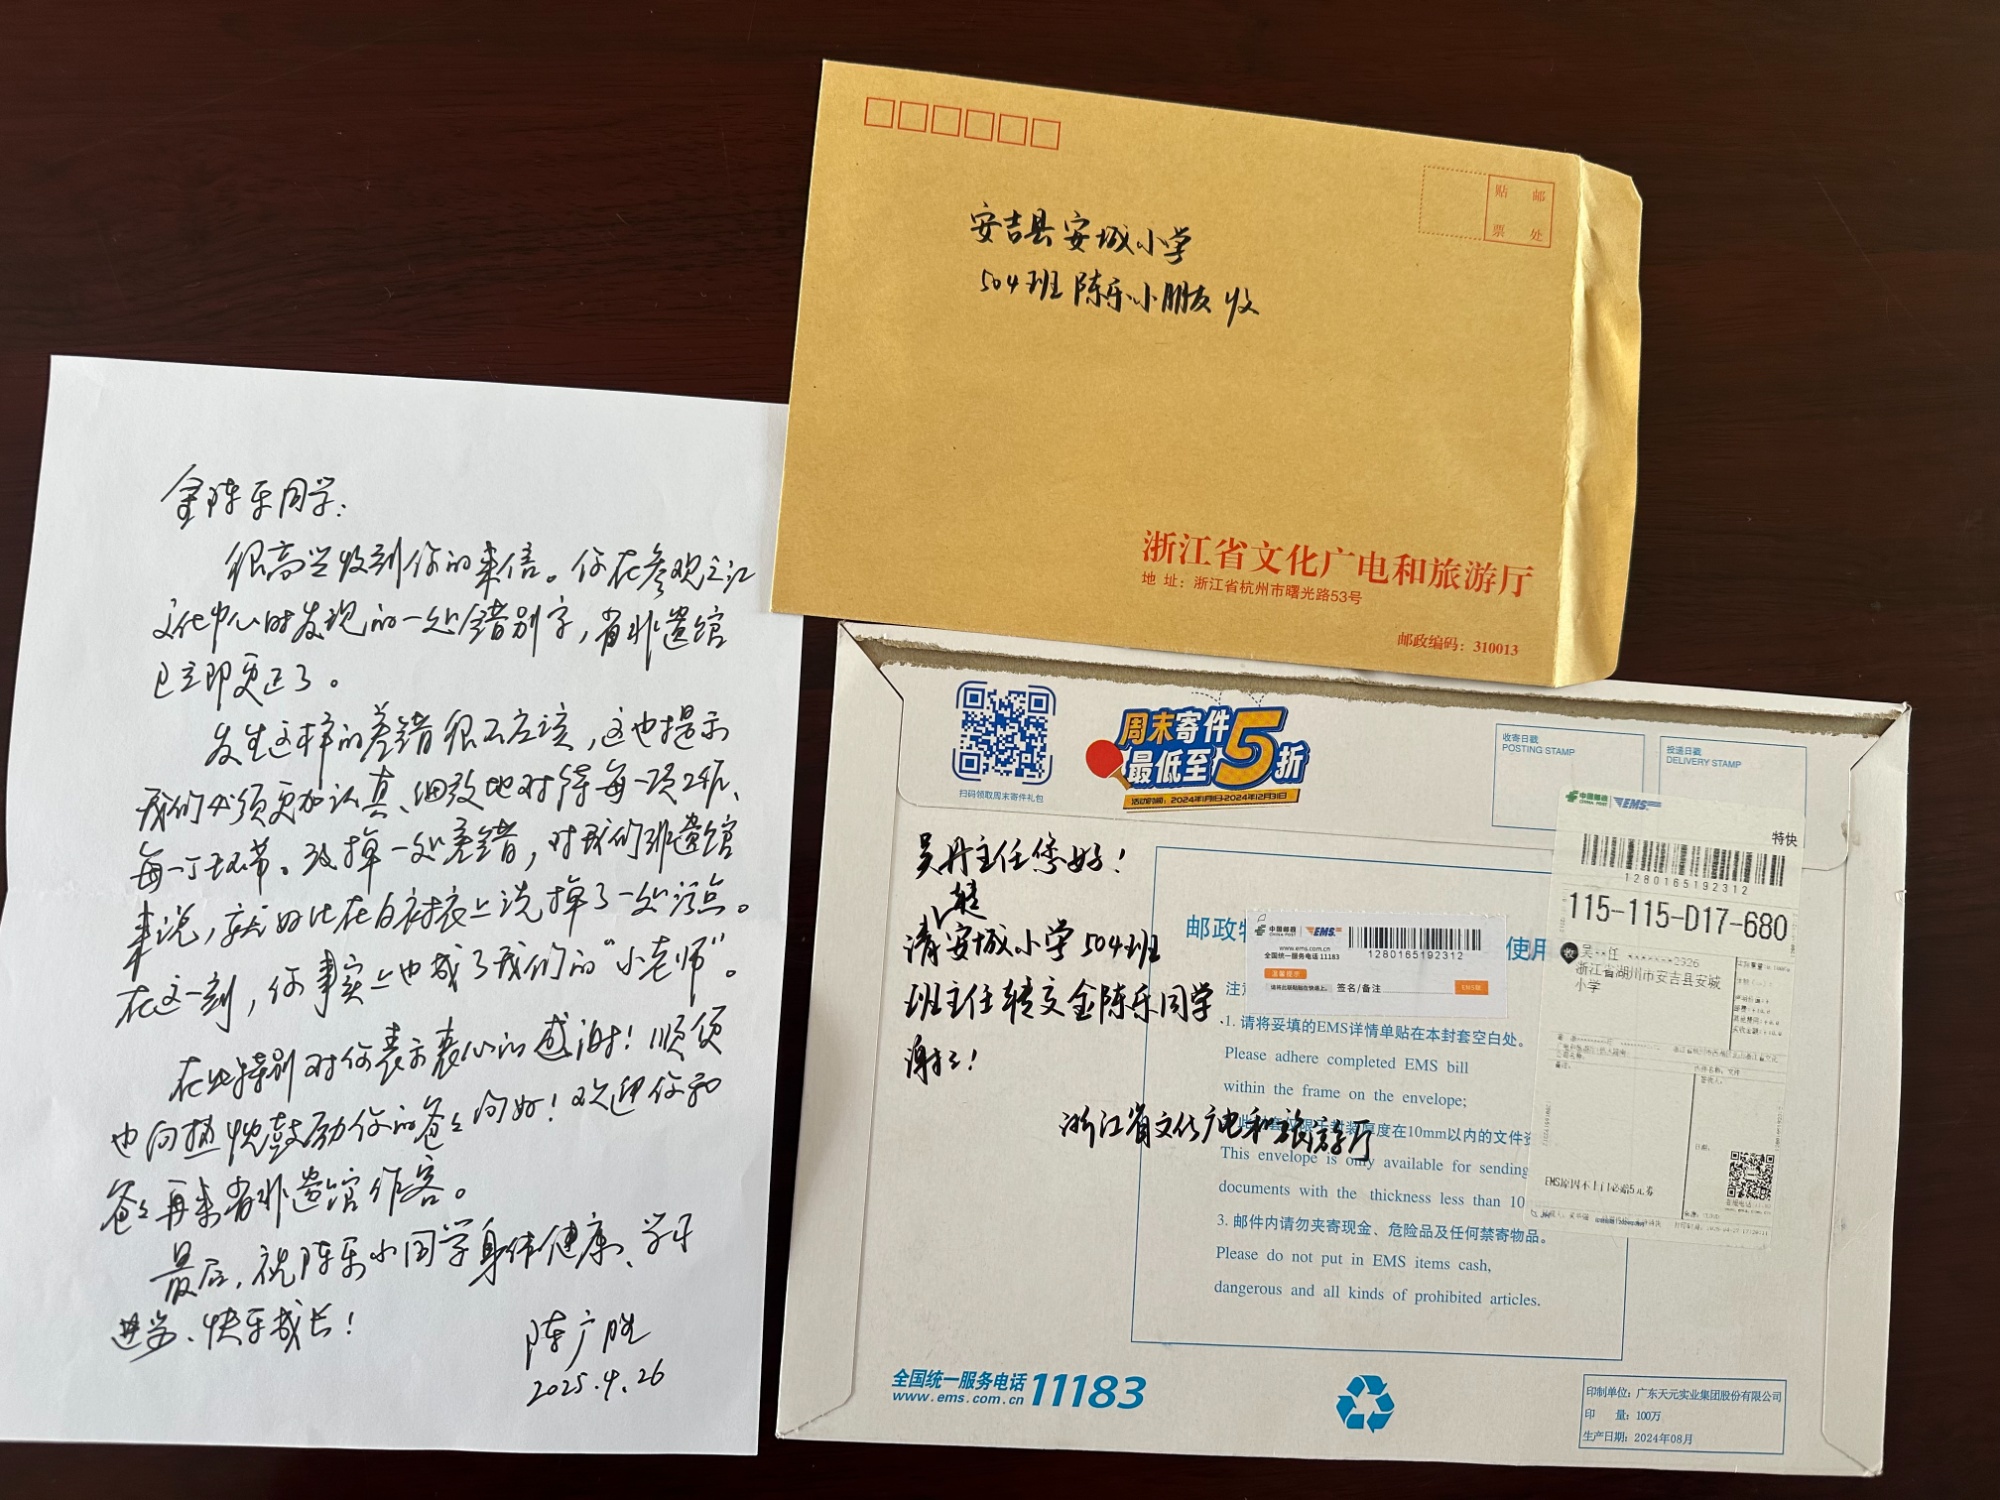 金陈乐同学：
很高兴收到你的来信。你在参观之江
文化中心时发现的一处错别字，省非遗馆
已立即更正了。
发生这样的差错很不应该，这也提示
我们必须更加认真、细致地对待每一项工作、
每一个环节。改掉一处差错，对我们非遗馆
来说，就好比在白衬衣上洗掉了一处污点。
在这一刻，你事实上也成了我们的“小老师”。
在此特别对你表示衷心的感谢！顺便
也向热忱鼓励你的爸爸问好！欢迎你和
爸爸再来省非遗馆作客。
最后，祝陈乐小同学身体健康、学习
进步、快乐成长！
陈广胜
2025.4.26
贴 邮
票 处
安吉县安城小学
504班陈乐小朋友 收
浙江省文化广电和旅游厅
地 址：浙江省杭州市曙光路53号
邮政编码：310013
扫码领取周末寄件礼包
周末寄件
最低至5折
活动时间：2024年1月1日-2024年12月31日
收寄日戳
POSTING STAMP
投递日戳
DELIVERY STAMP
吴丹主任您好！
请转安城小学504班
班主任转交金陈乐同学
谢谢！
浙江省文化广电和旅游厅
中国邮政
CHINA POST
EMS
特快
1280165192312
115-115-D17-680
收 吴**任 *******2326
浙江省湖州市安吉县安城
小学
EMS原因不上门必赔5元券
邮政 使用
中国邮政
CHINA POST
EMS
www.ems.com.cn
全国统一服务电话 11183
1280165192312
温馨提示
签名/备注
1. 请将妥填的EMS详情单贴在本封套空白处。
Please adhere completed EMS bill
within the frame on the envelope;
封装厚度在10mm以内的文件
This envelope is only available for sending
documents with the thickness less than 10
3. 邮件内请勿夹寄现金、危险品及任何禁寄物品。
Please do not put in EMS items cash,
dangerous and all kinds of prohibited articles.
全国统一服务电话 11183
www.ems.com.cn
印制单位：广东天元实业集团股份有限公司
印 量：100万
生产日期：2024年08月